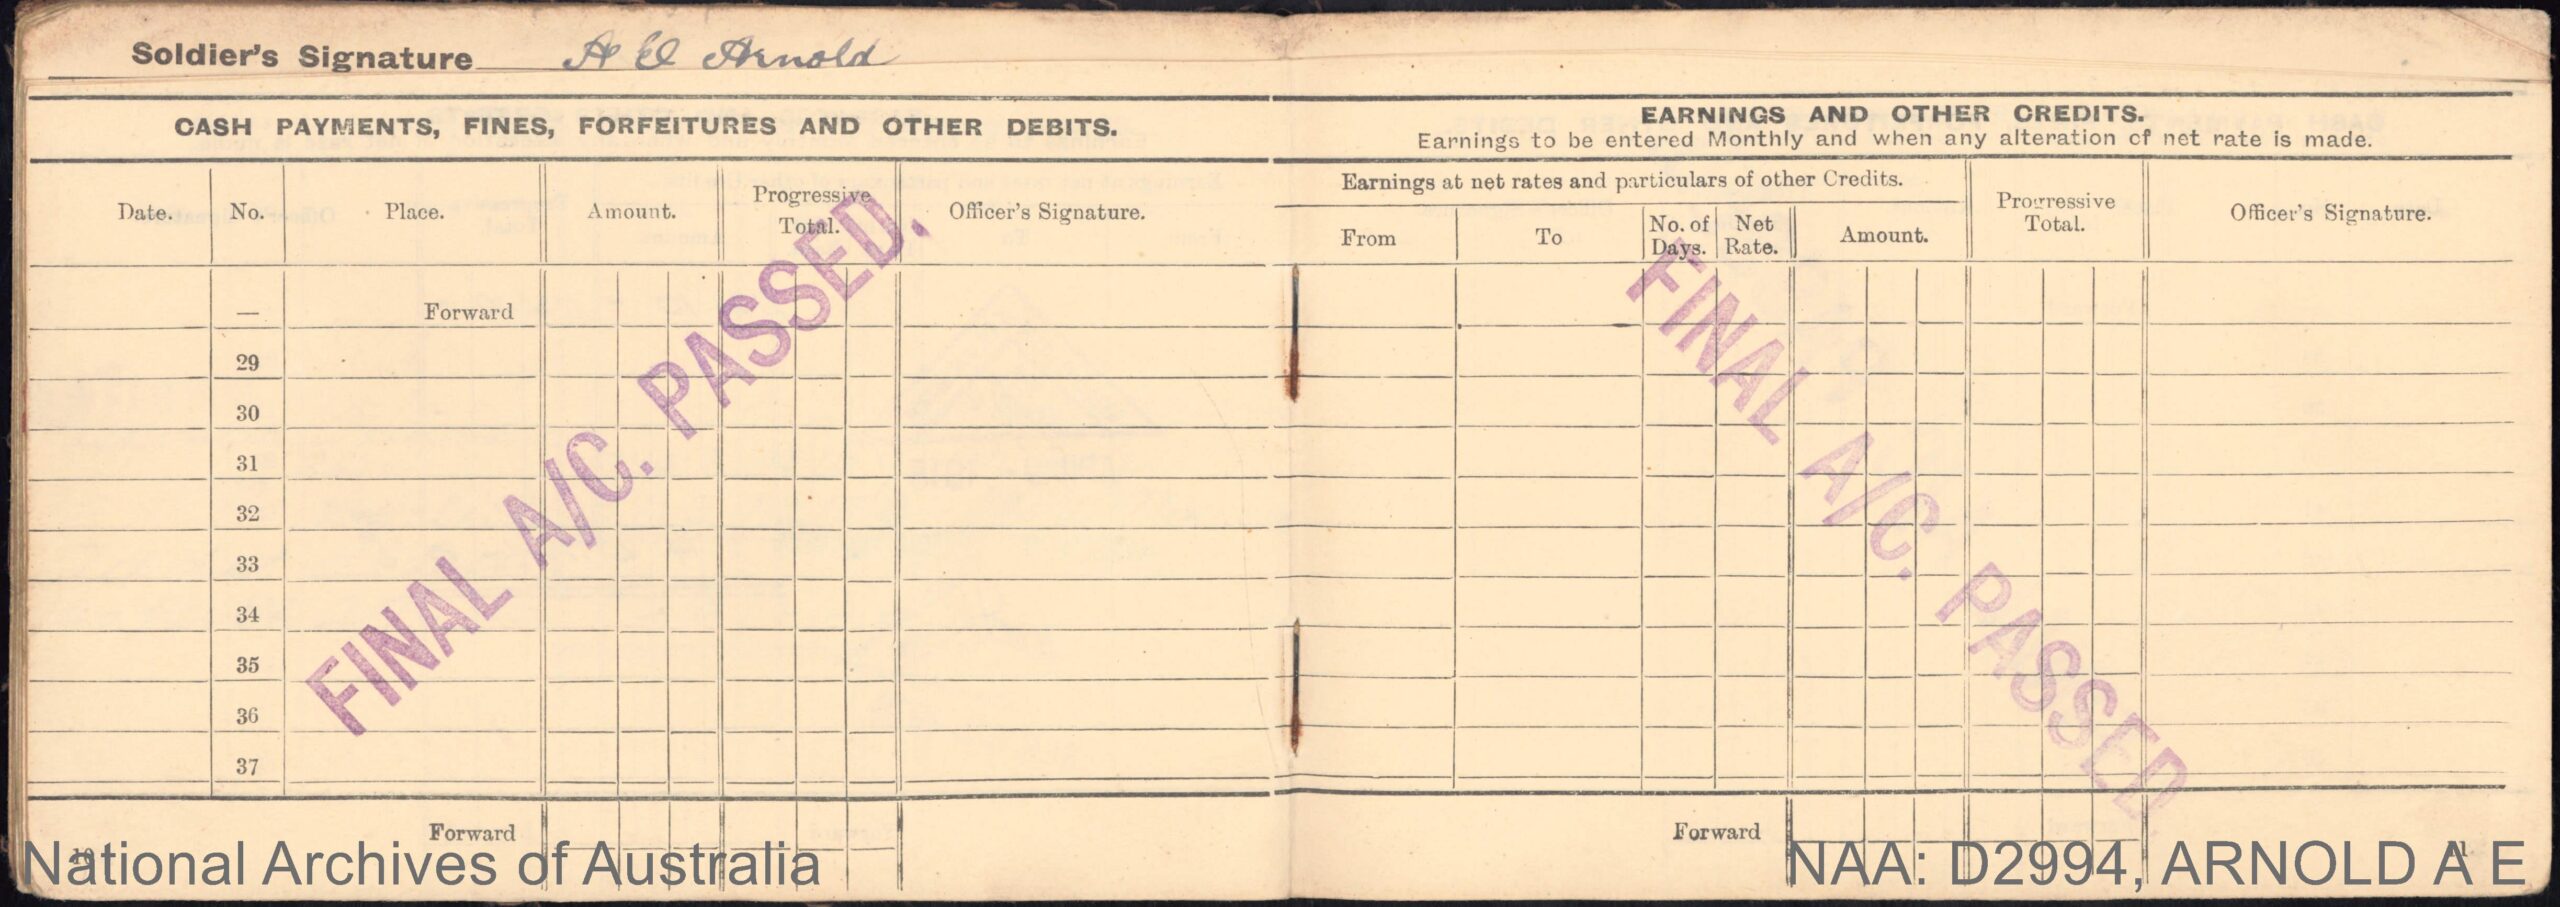 Soldier's Signature A E Arnold
CASH PAYMENTS, FINES, FORFEITURES AND OTHER DEBITS.
Date. No. Place. Amount. Progressive Total. Officer's Signature.
— Forward
29
30
31
32
33
34
35
36
37
Forward
10
FINAL A/C. PASSED.
EARNINGS AND OTHER CREDITS.
Earnings to be entered Monthly and when any alteration of net rate is made.
Earnings at net rates and particulars of other Credits.
From To No. of Days. Net Rate. Amount. Progressive Total. Officer's Signature.
FINAL A/C. PASSED
Forward
National Archives of Australia
NAA: D2994, ARNOLD A E